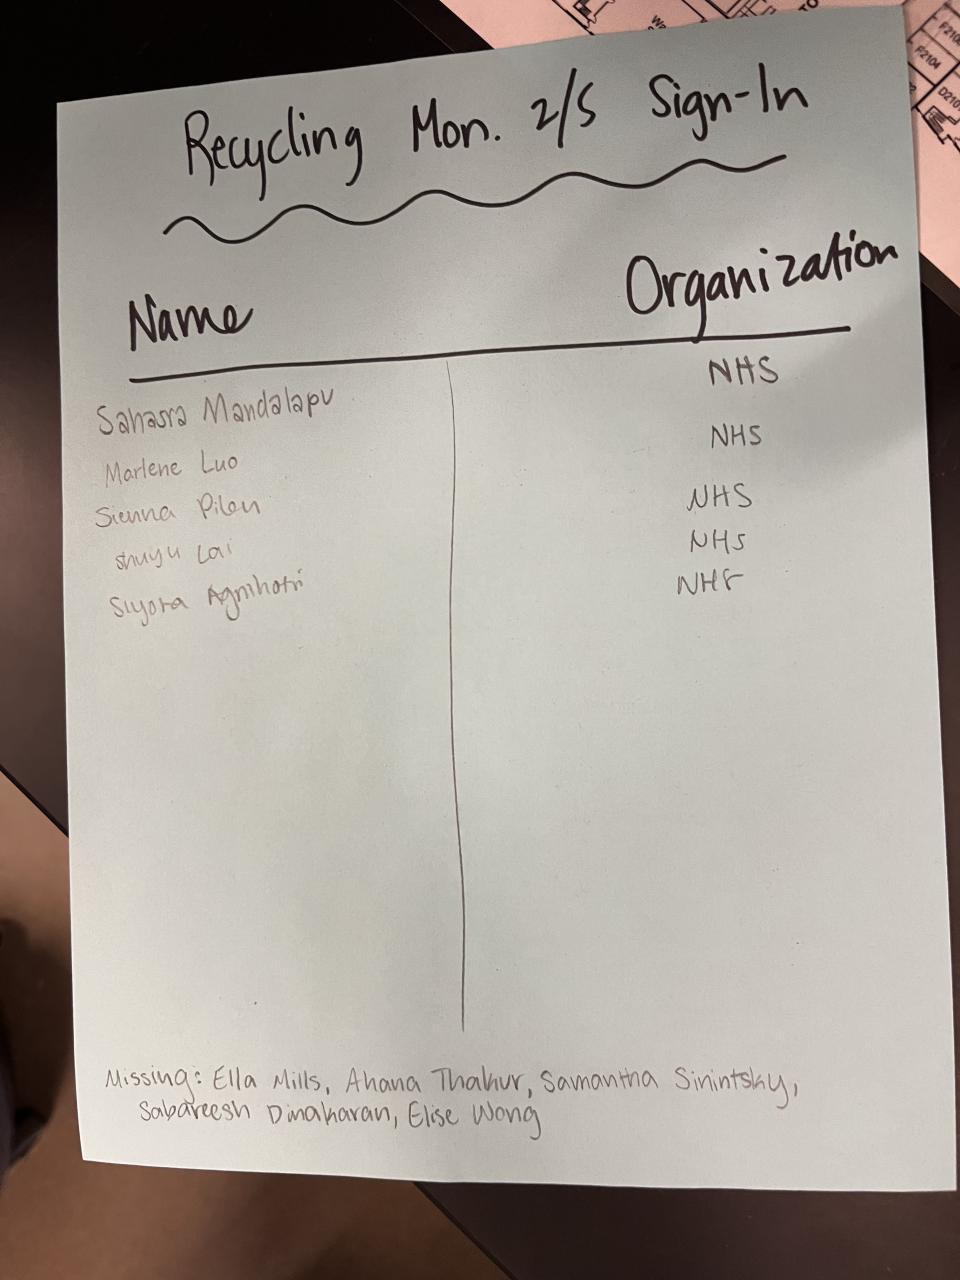 Recycling Mon. 2/5 Sign-In
Name Organization
Sahasra Mandalapu NHS
Marlene Luo NHS
Sienna Pilon NHS
Shuyu Lai NHS
Siyora Agnihotri NHS
Missing: Ella Mills, Ahana Thakur, Samantha Sinintsky,
Sabareesh Dinakaran, Elise Wong
F2104